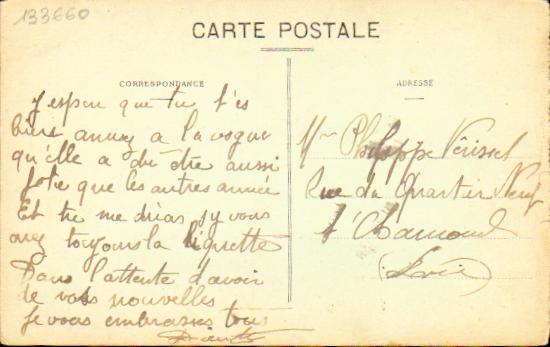 133660
CARTE POSTALE
CORRESPONDANCE
ADRESSE
J'espère que tu t'es
bien amusé a la vogue
qu'elle a du être aussi
jolie que les autres année
Et tu me diras si vous
avez toujours la
Dans l'attente d'avoir
de vos nouvelles
je vous embrasses tous
Mr Philippe
Rue du Quartier Neuf
St Chamond
(Loire)